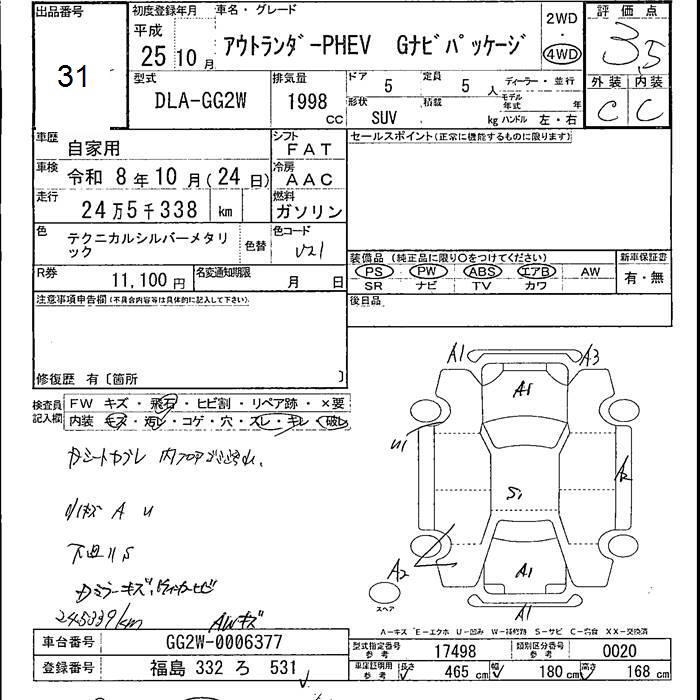 出品番号
31
初度登録年月
平成
25 10 月
車名・グレード
アウトランダーPHEV Gナビパッケージ
2WD
・
4WD
評価点
3.5
型式
DLA-GG2W
排気量
1998 CC
ドア 5 定員 5 人
ディーラー・並行
形状 SUV 積載 kg
モデル年式 年
ハンドル 左・右
外装 内装
C C
車歴 自家用
シフト FAT
セールスポイント(正常に機能するものに限ります)
車検 令和 8 年 10 月 (24 日)
冷房 AAC
走行 24 万 5 千 338 km
燃料 ガソリン
色 テクニカルシルバーメタリック
色替
色コード V21
装備品 (純正品に限り〇をつけてください)
PS PW ABS エアB AW
SR ナビ TV カワ
新車保証書
有・無
R券 11,100 円
名変通知期限 月 日
後日品
注意事項申告欄(不具合内容等は具体的に記入して下さい)
修復歴 有〔箇所 〕
検査員記入欄
FW キズ・飛石・ヒビ割・リペア跡・×要
内装 キズ・汚レ・コゲ・穴・スレ・キレ・破レ
小キズ A U
下廻り S
245339km
AWキズ
A1 A3
A1
U1
A2
S1
A2
A1
A1
スペア
A-キズ E-エクボ U-凹み W-補修跡 S-サビ C-腐食 XX-交換済
車台番号 GG2W-0006377
登録番号 福島 332 ろ 531
型式指定番号 参考 17498
類別区分番号 参考 0020
車庫証明用 参考 長さ 465 cm 幅 180 cm 高さ 168 cm